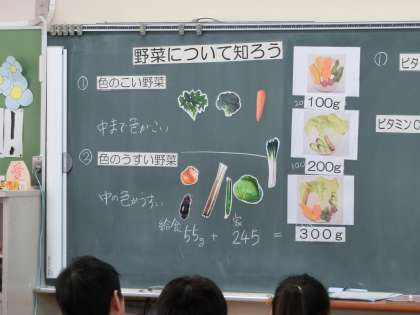 野菜について知ろう
① 色のこい野菜
中まで色がこい
② 色のうすい野菜
中の色がうすい
給食 家
55g + 245 =
20
100g
100
200g
300g
①
ビタ
ビタミンC